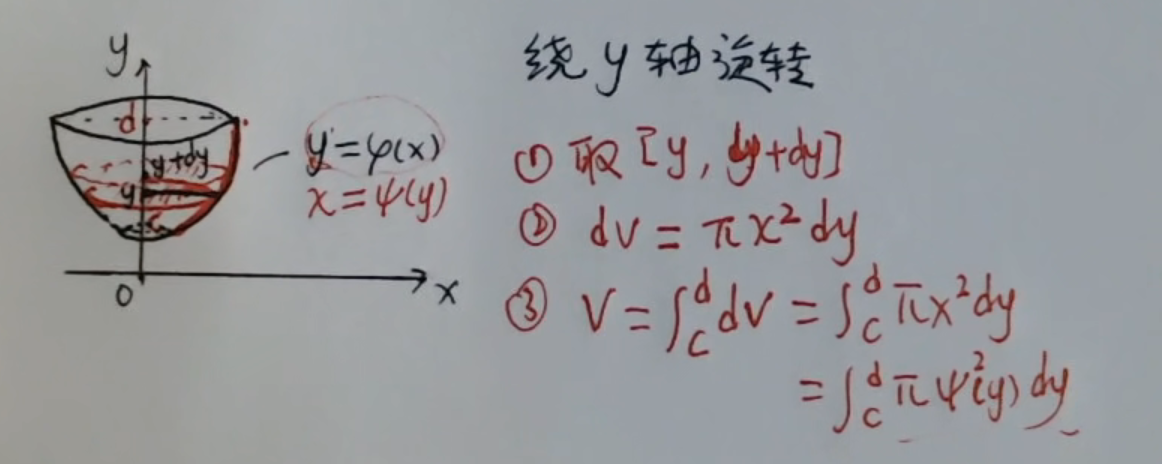 绕 y 轴旋转
y
d
y+dy
y
c
0
x
y=φ(x)
x=ψ(y)
① 取 [y, dy+dy]
② dV = πx²dy
③ V = ∫_c^d dV = ∫_c^d πx²dy
= ∫_c^d πψ²(y) dy